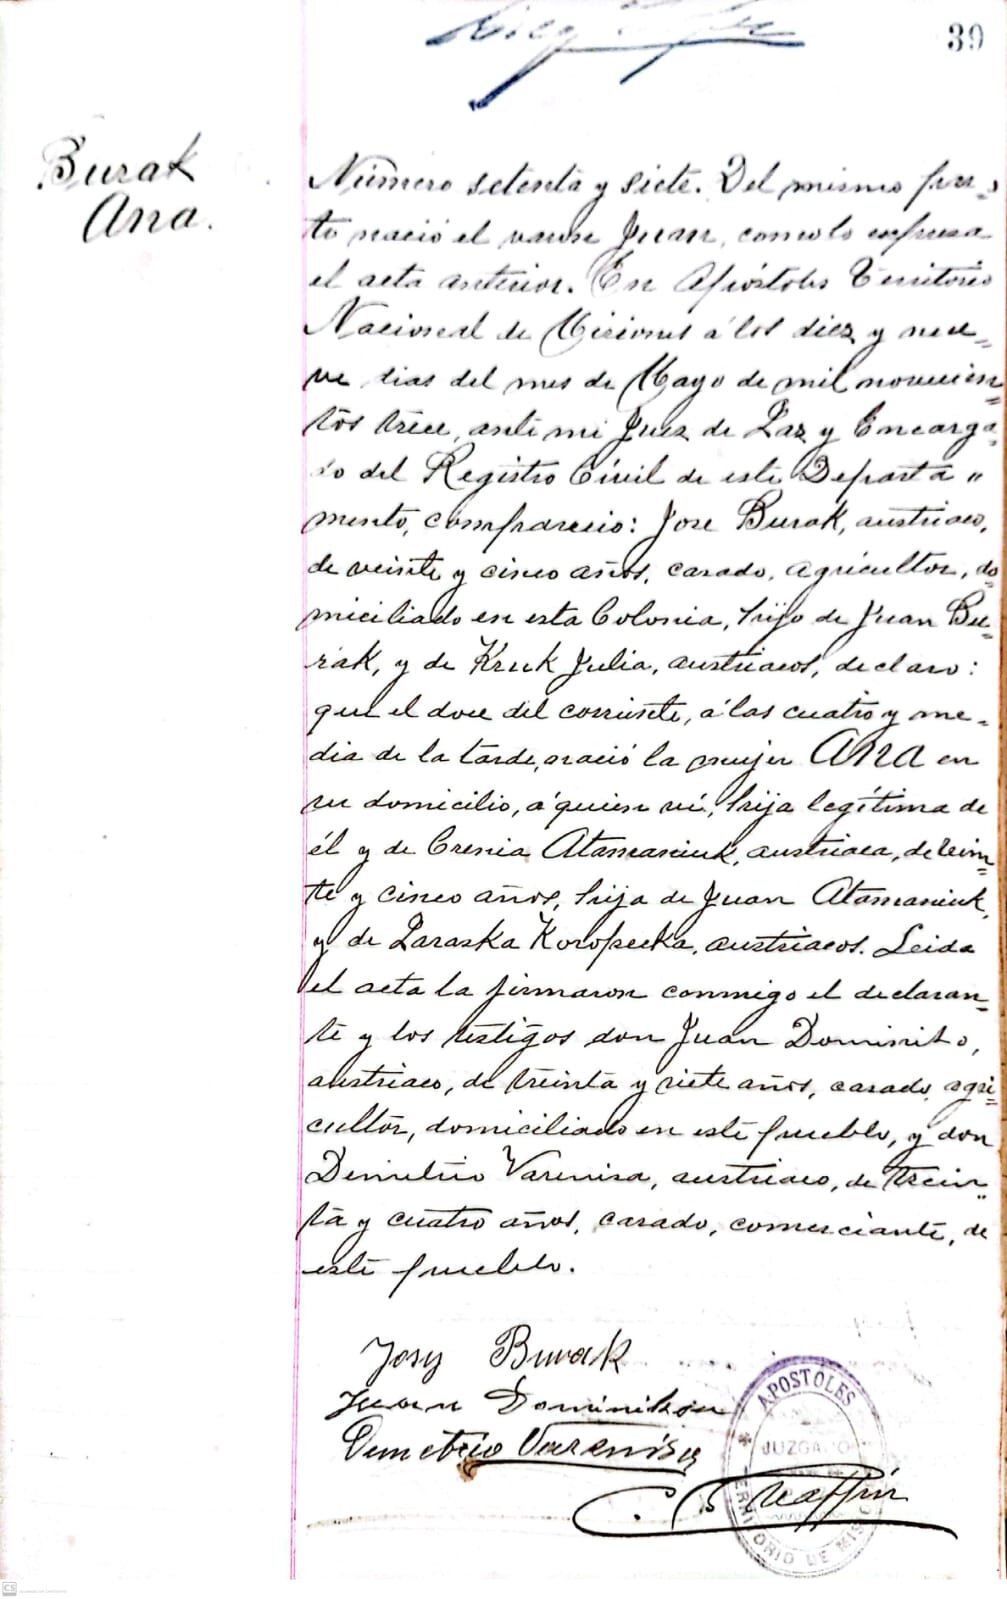 39
Burak
Ana.
Número setenta y siete. Del mismo par-
to nació el varon Juan, como lo expresa
el acta anterior. En Apóstoles Territorio
Nacional de Misiones á los diez y nue-
ve dias del mes de Mayo de mil novecien-
tos trece, ante mi Juez de Paz y Encarga-
do del Registro Civil de este Departa"
mento, compareció: Jose Burak, austriaco,
de veinte y cinco años, casado, agricultor, do
miciliado en esta Colonia, hijo de Juan Bu-
rak, y de Kruk Julia, austriacos, declaro:
que el doce del corriente, á las cuatro y me-
dia de la tarde, nació la mujer ANA en
su domicilio, á quien ví, hija legítima de
él y de Crenia Atamaniuk, austriaca, de vein-
te y cinco años, hija de Juan Atamaniuk,
y de Paraska Koropecka, austriacos. Leida
el acta la firmaron conmigo el declaran-
te y los testigos don Juan Dominiko,
austriaco, de treinta y siete años, casado, agri-
cultor, domiciliado en este pueblo, y don
Demetrio Varenisa, austriaco, de trein-
ta y cuatro años, casado, comerciante, de
este pueblo.
Josy Burak
Juan Dominikou
Demetrio Varenisa
APOSTOLES
JUZGADO
TERRITORIO DE MISIONES
CS